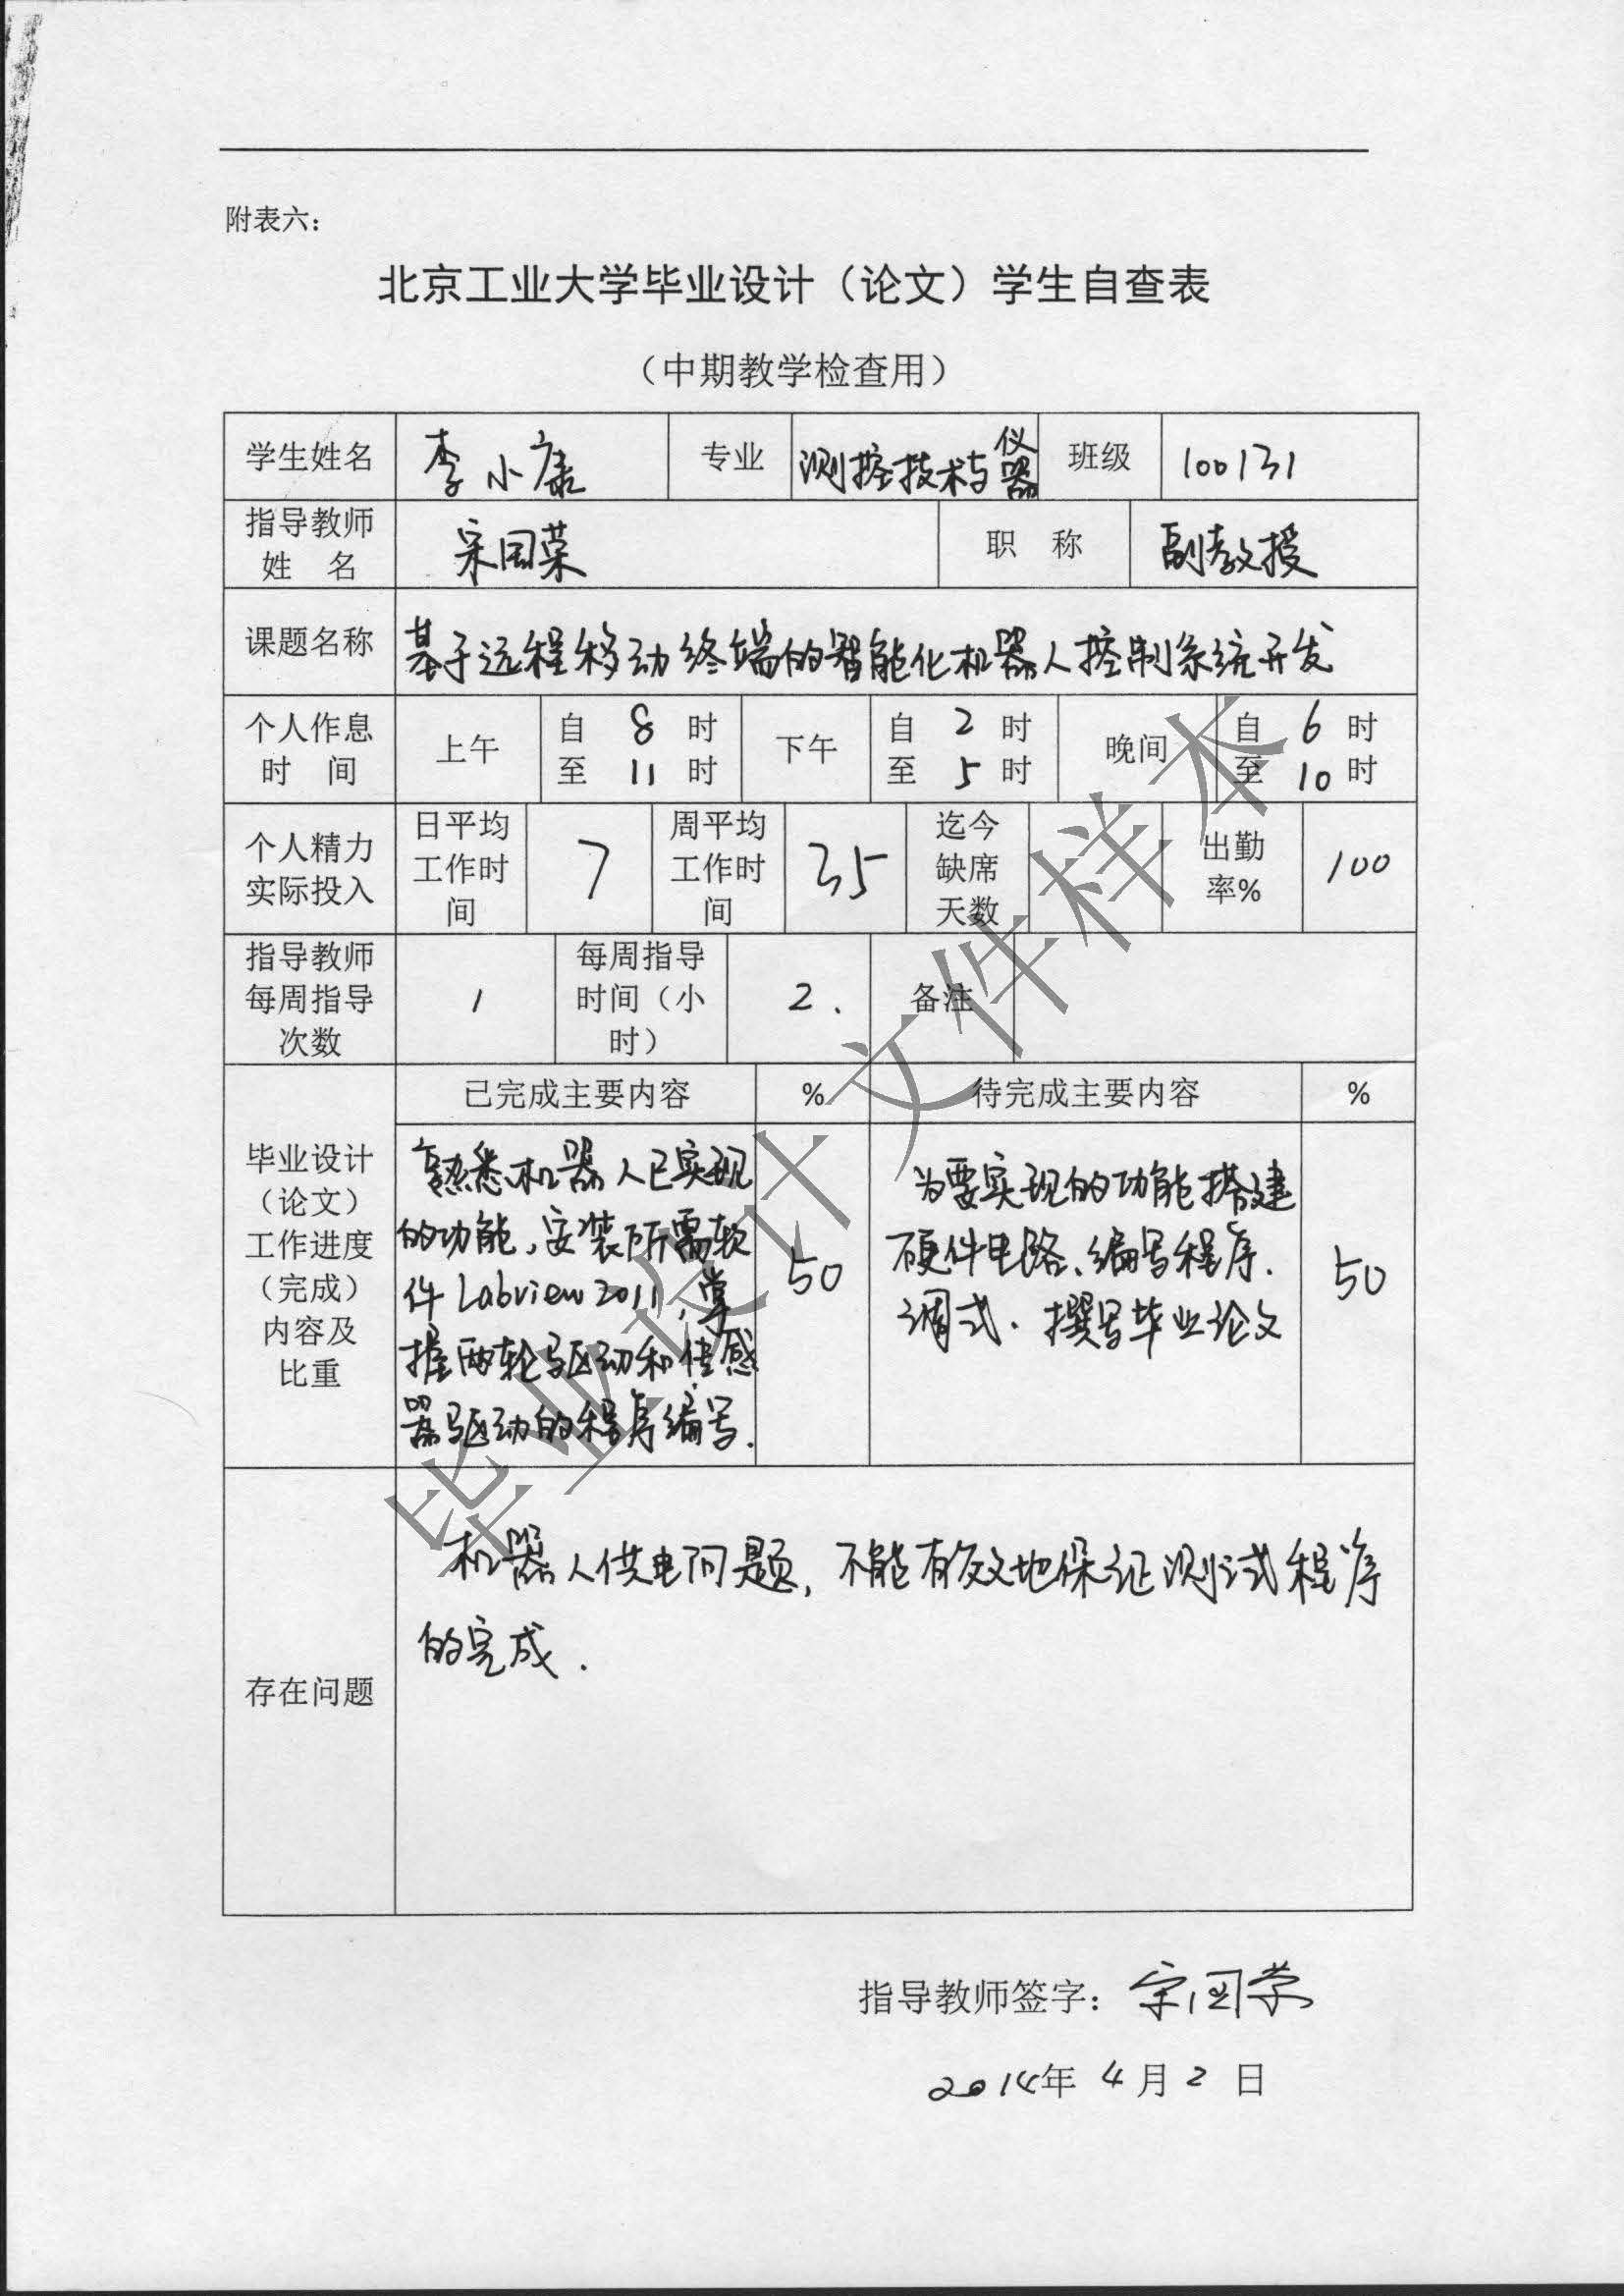 附表六：
北京工业大学毕业设计（论文）学生自查表
（中期教学检查用）
学生姓名 李小康 专业 测控技术与仪器 班级 100131
指导教师姓 名 宋国荣 职 称 副教授
课题名称 基于远程移动终端的智能化机器人控制系统开发
个人作息时 间 上午 自 8 时 至 11 时 下午 自 2 时 至 5 时 晚间 自 6 时 至 10 时
个人精力实际投入 日平均工作时间 7 周平均工作时间 35 迄今缺席天数 出勤率% 100
指导教师每周指导次数 1 每周指导时间（小时） 2. 备注
毕业设计（论文）工作进度（完成）内容及比重
已完成主要内容 % 待完成主要内容 %
熟悉机器人已实现
的功能，安装所需软
件Labview2011，掌
握两轮驱动和传感
器驱动的程序编写.
50
为要实现的功能搭建
硬件电路、编写程序.
调式. 撰写毕业论文
50
存在问题
机器人供电问题，不能有效地保证测试程序
的完成.
指导教师签字：宋国荣
2014年 4 月 2 日
毕业设计文件样本